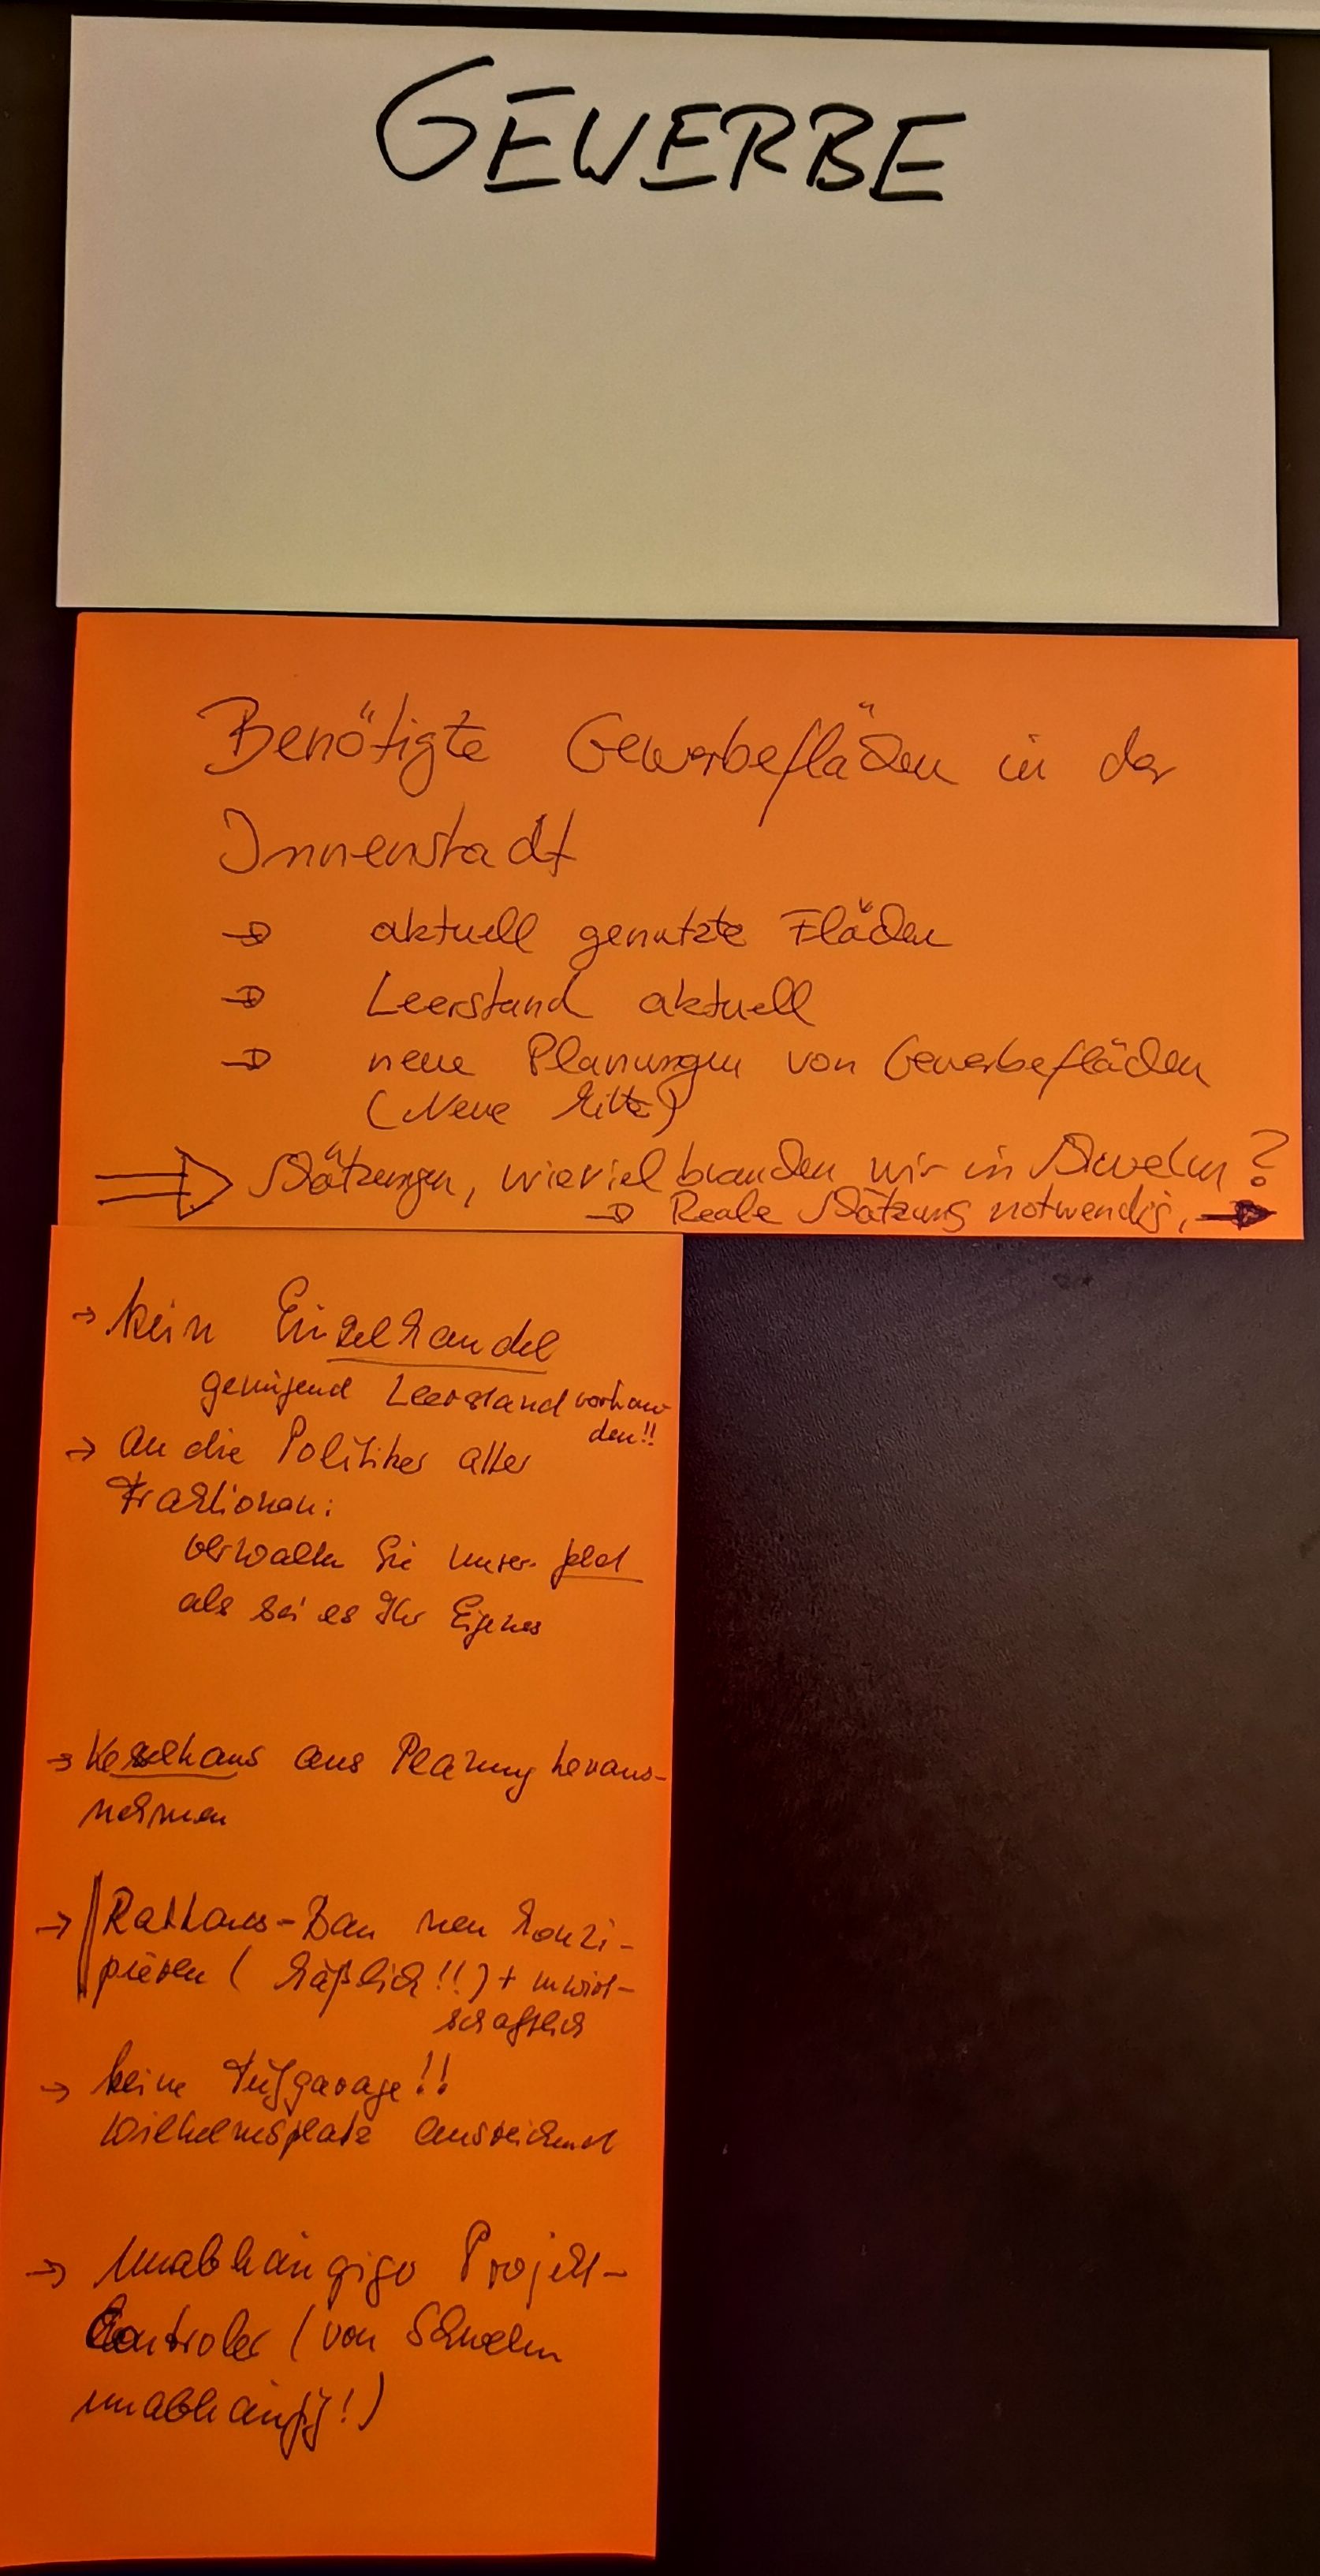 GEWERBE
Benötigte Gewerbeflächen in der
Innenstadt
→ aktuell genutzte Flächen
→ Leerstand aktuell
→ neue Planungen von Gewerbeflächen
(Neue Mitte)
⇒ Schätzungen, wieviel brauchen wir in Schwelm?
→ Reale Schätzung notwendig, →
→ kein Einzelhandel
genügend Leerstand vorhan-
den!!
→ An die Politiker aller
Fraktionen:
verwalten Sie unser Geld
als sei es Ihr Eigenes
→ Kesselhaus aus Planung heraus-
nehmen
→ Rathaus-Bau neu konzi-
pieren (häßlich!!) + unwirt-
schaftlich
→ keine Tiefgarage!!
Wilhelmsplatz ausreichend
→ Unabhängige Projekt-
Controler (von Schwelm
unabhängig!)